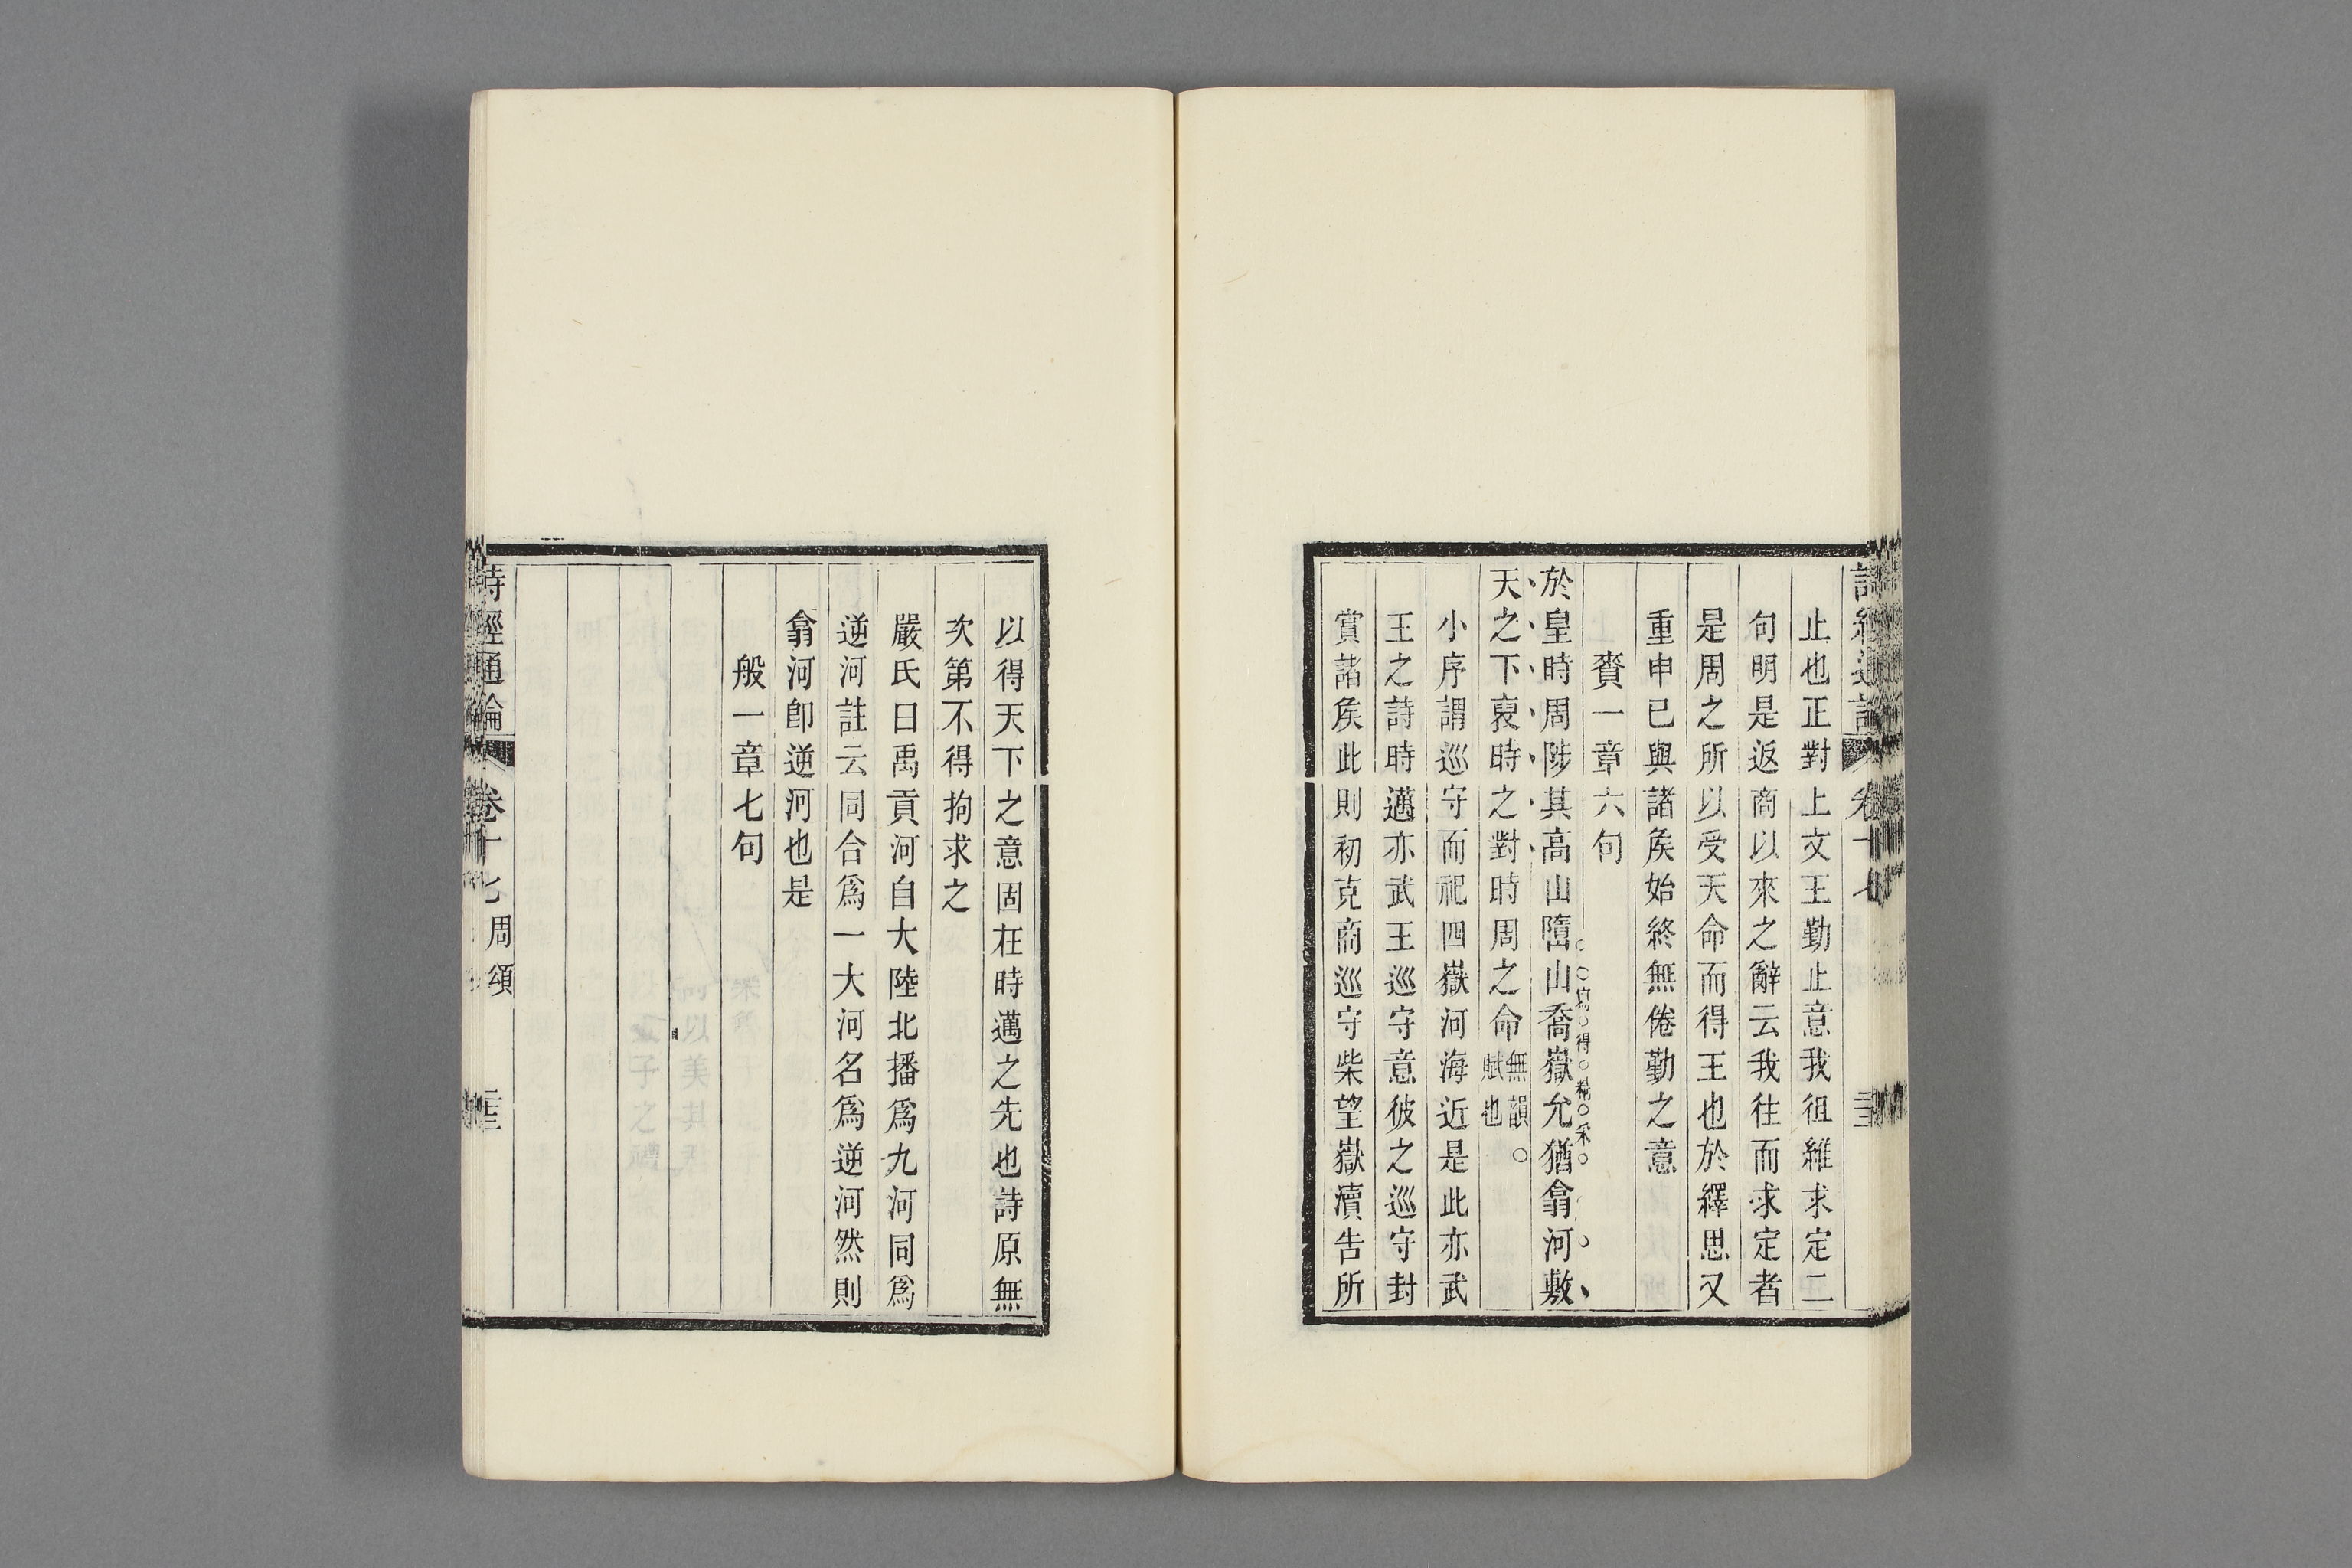 止也正對上文王勤止意我徂維求定二
句明是返商以來之辭云我往而求定者
是周之所以受天命而得王也於繹思又
重申已與諸矦始終無倦勤之意
賚一章六句
於皇時周陟其高山嶞山喬嶽允猶翕河敷
寫得精采
天之下裒時之對時周之命無韻賦也。
小序謂巡守而祀四嶽河海近是此亦武
王之詩時邁亦武王巡守意彼之巡守封
賞諸矦此則初克商巡守柴望嶽瀆告所
以得天下之意固在時邁之先也詩原無
次第不得拘求之
嚴氏曰禹貢河自大陸北播爲九河同爲
逆河註云同合爲一大河名爲逆河然則
翕河卽逆河也是
般一章七句
詩經通論 卷十七 周頌